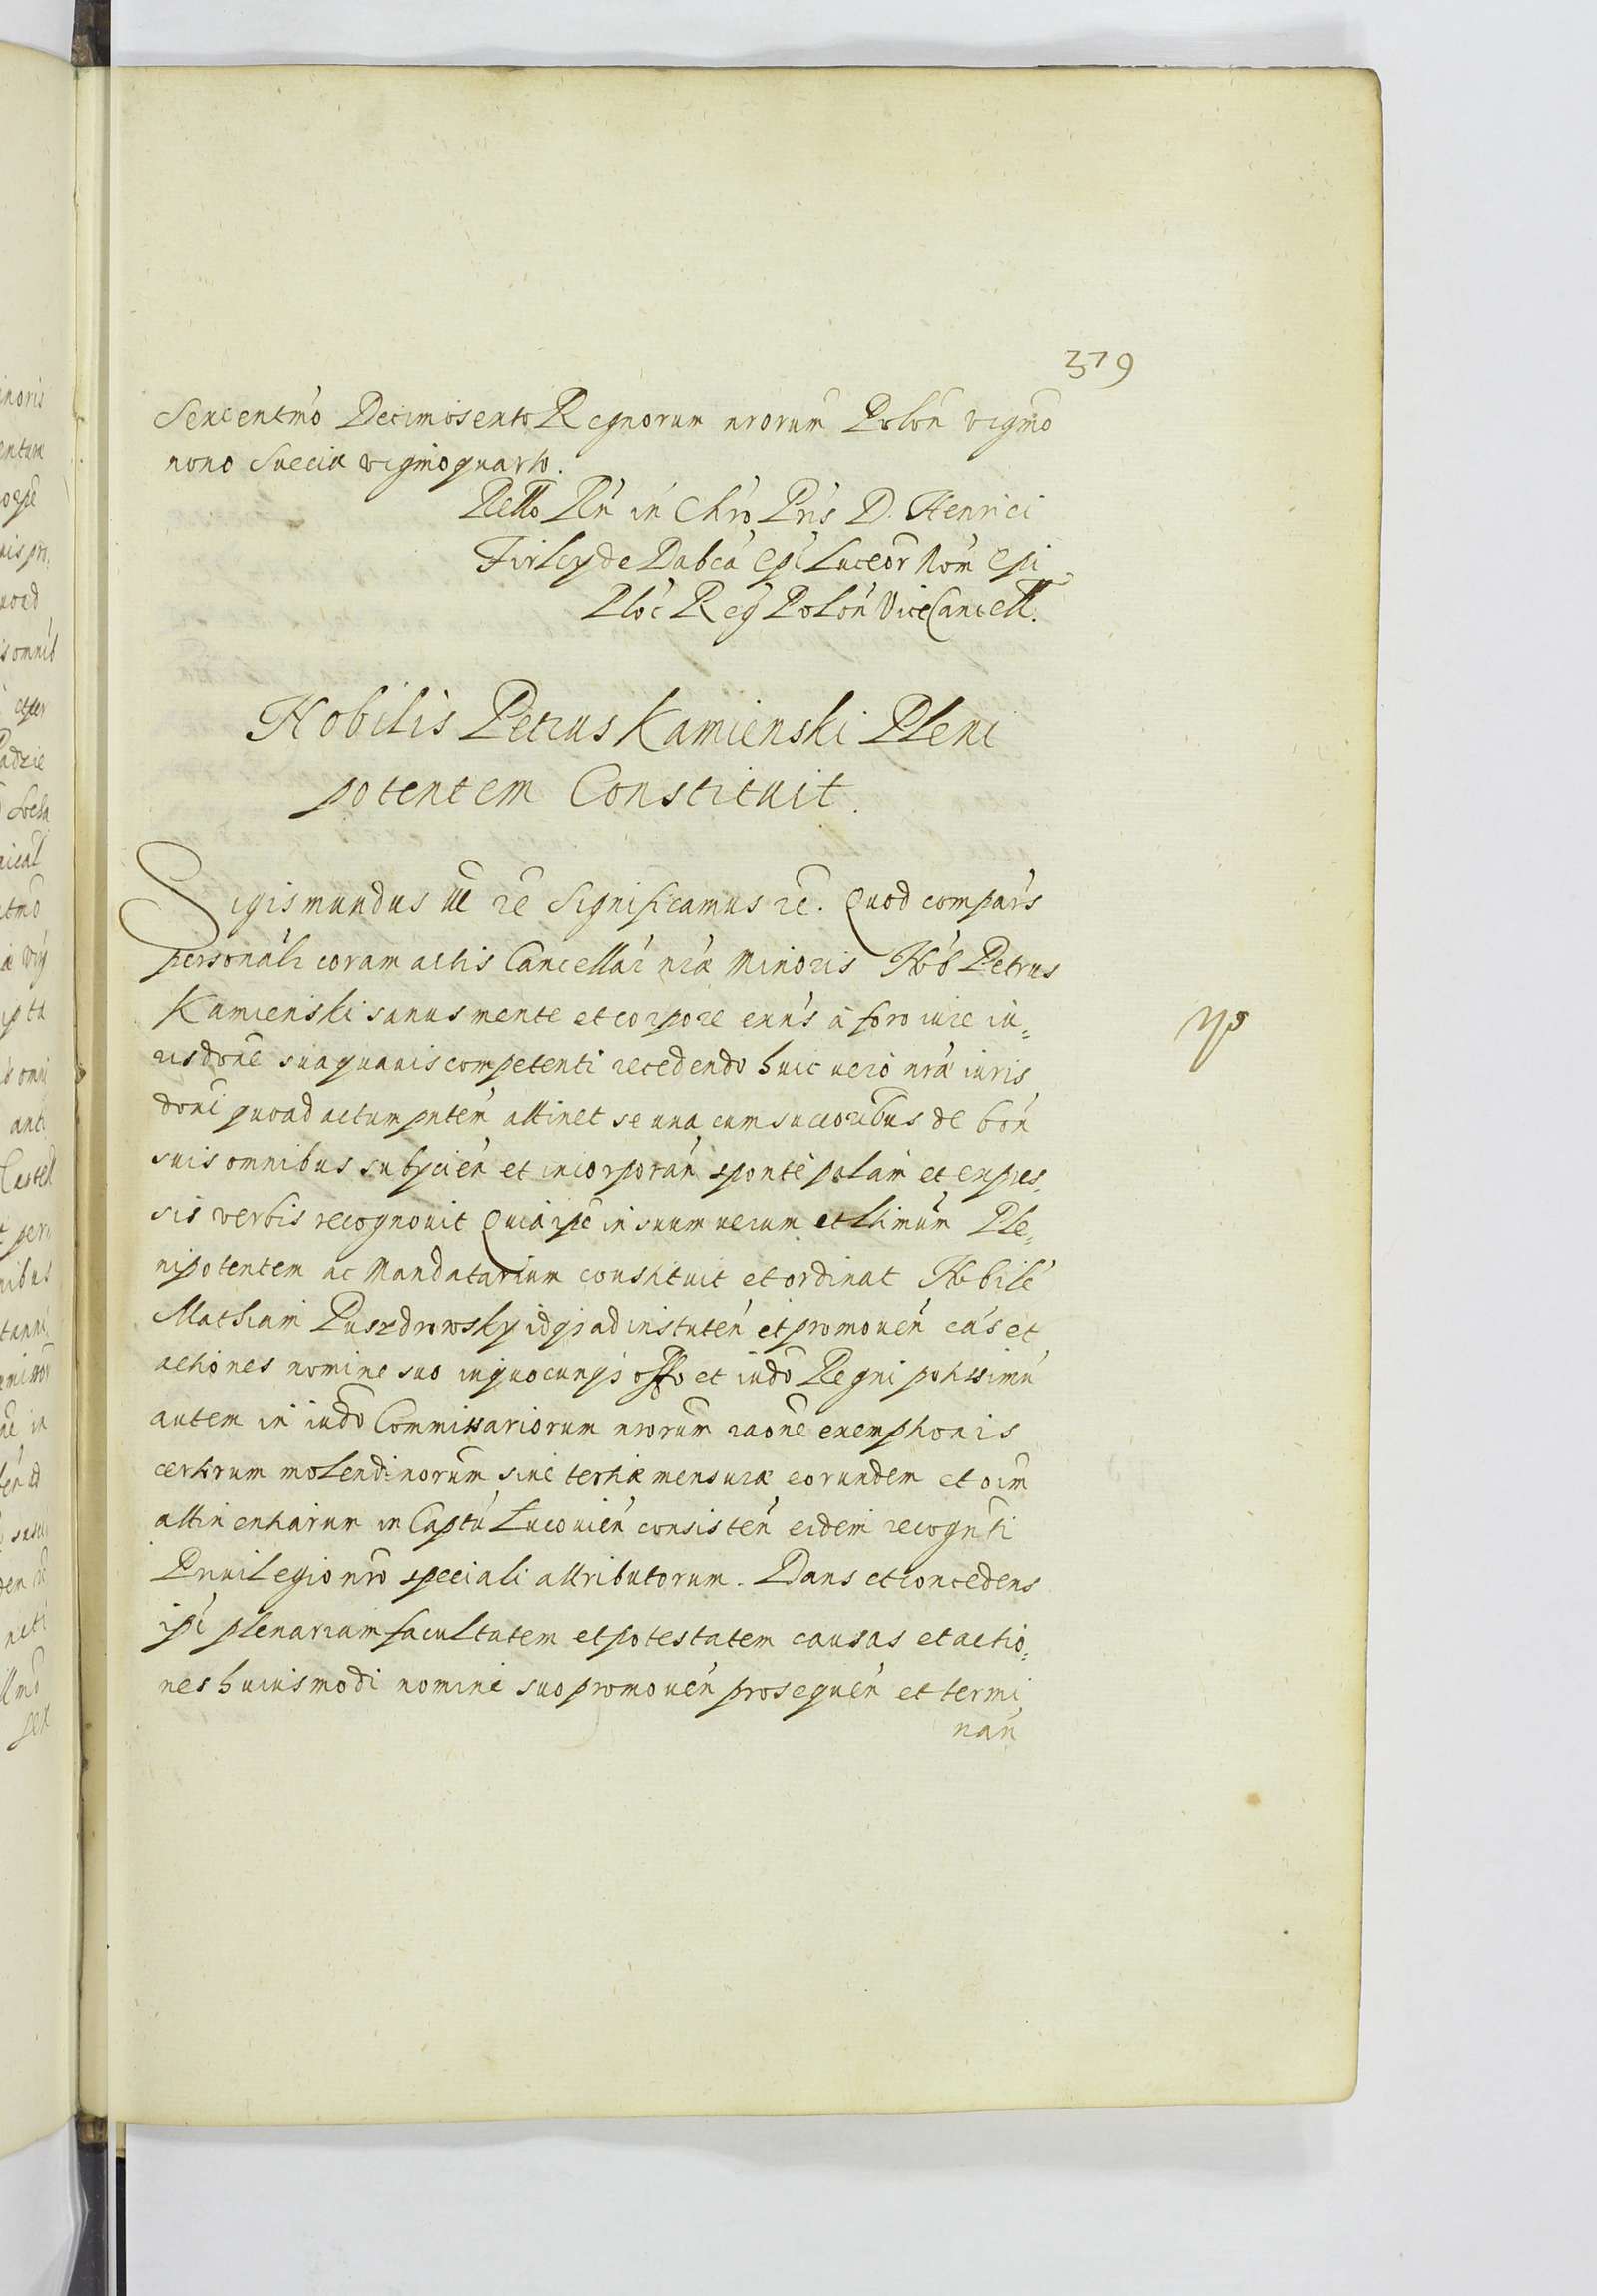 379
Sexcentmo Decimosexto Regnorum nrorum Polon vigmo
nono Sueciæ vigmoquarto.
Rello Rn in Chro Pris D. Henrici
Firley de Dabca Epi Luceor Nom Epi
Ploc Reg Polon ViceCancell.
Nobilis Petrus Kamienski Pleni
potentem Constituit.
Sigismundus III rc Significamus rc. Quod compars
personalr coram actis Cancellar nræ Minoris Nob Petrus
Kamienski sanus mente et corpore exns à foro iure iu=
risdone sua quauis competenti recedendo huic vero nræ iuris
doni quoad actum pntem attinet se una cum succoribus de bon
suis omnibus subycien et incorporan sponte palam et expres=
sis verbis recognouit Quia ipe in suum verum et ltimum Ple=
nipotentem ac Mandatarium constituit et ordinat Nobile
Mathiam Puszdrowsky idqs ad instuten et promouen cas et
actiones nomine suo in quocunqs offo et iudo Regni potissimu
autem in iudo Commissariorum nrorum raone exemptionis
certorum molendinorum siue tertiæ mensuræ eorundem et oim
attinentiarum in Captu Lucouien consisten eidem recognti
Priuilegio nro speciali attributorum. Dans et concedens
ipi plenariam facultatem et potestatem causas et actio=
nes huiusmodi nomine suo promouen prosequen et termi
nan
inoris
entum
is omnib
Padzie
anti
Castell
nibus